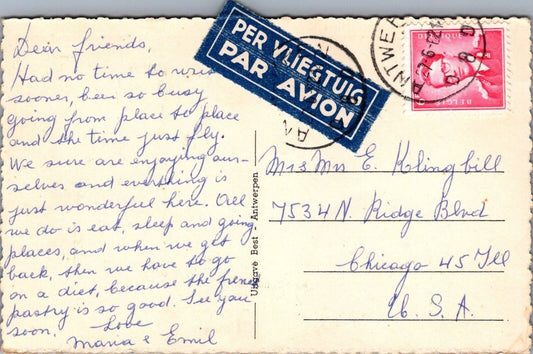 Dear friends,
Had no time to write
sooner, been so busy
going from place to place
and the time just fly.
We sure are enjoying our-
selves and everthing is
just wonderful here. All
we do is eat, sleep and going
places, and when we get
back, then we have to go
on a diet, because the french
pastry is so good. See you
soon. Love
Maria & Emil
Uitgave Best - Antwerpen
PER VLIEGTUIG
PAR AVION
ANTWERPEN
BELGIE
Mrs Mr E. Klingbill
7534 N. Ridge Blvd
Chicago 45 Ill
U. S. A.